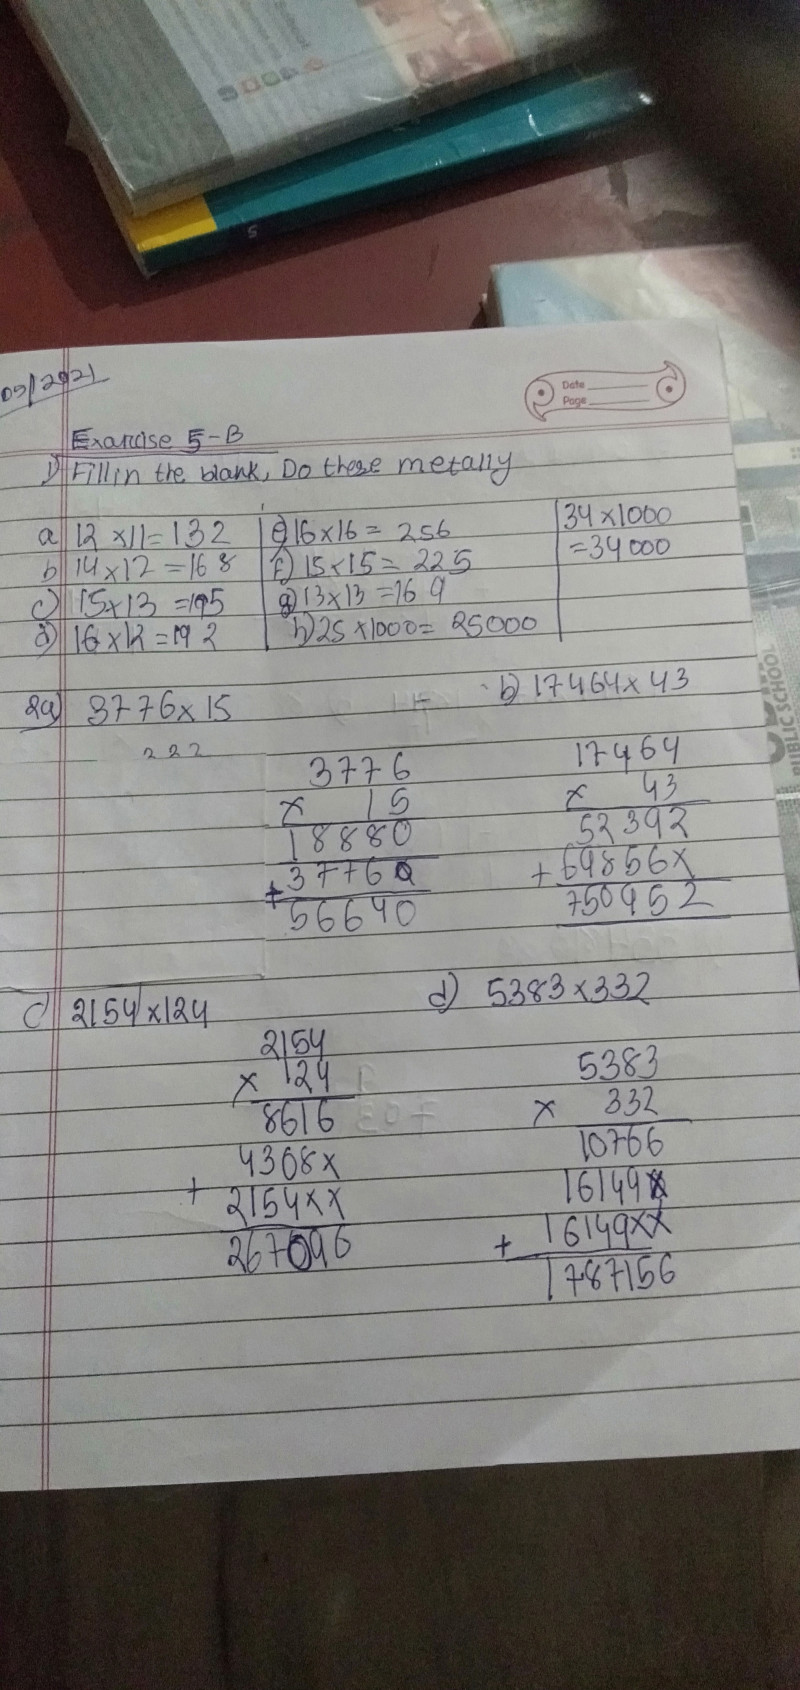 09/2021
Date
Page
Exancise 5-B
1) Fill in the blank, Do these metally
a 12 ×11=132
b 14×12 =168
c) 15×13 =195
d) 16×12=192
e) 16×16= 256
f) 15×15= 225
g) 13×13 =169
h) 25×1000= 25000
34×1000
=34000
2a) 3776×15
222
3776
× 15
18880
+37760
56640
b) 17464×43
17464
× 43
52392
+69856×
750952
c) 2154×124
2154
× 124
8616
4308×
+ 2154××
267096
d) 5383×332
5383
× 332
10766
16149×
+ 16149××
1787156
PUBLIC SCHOOL